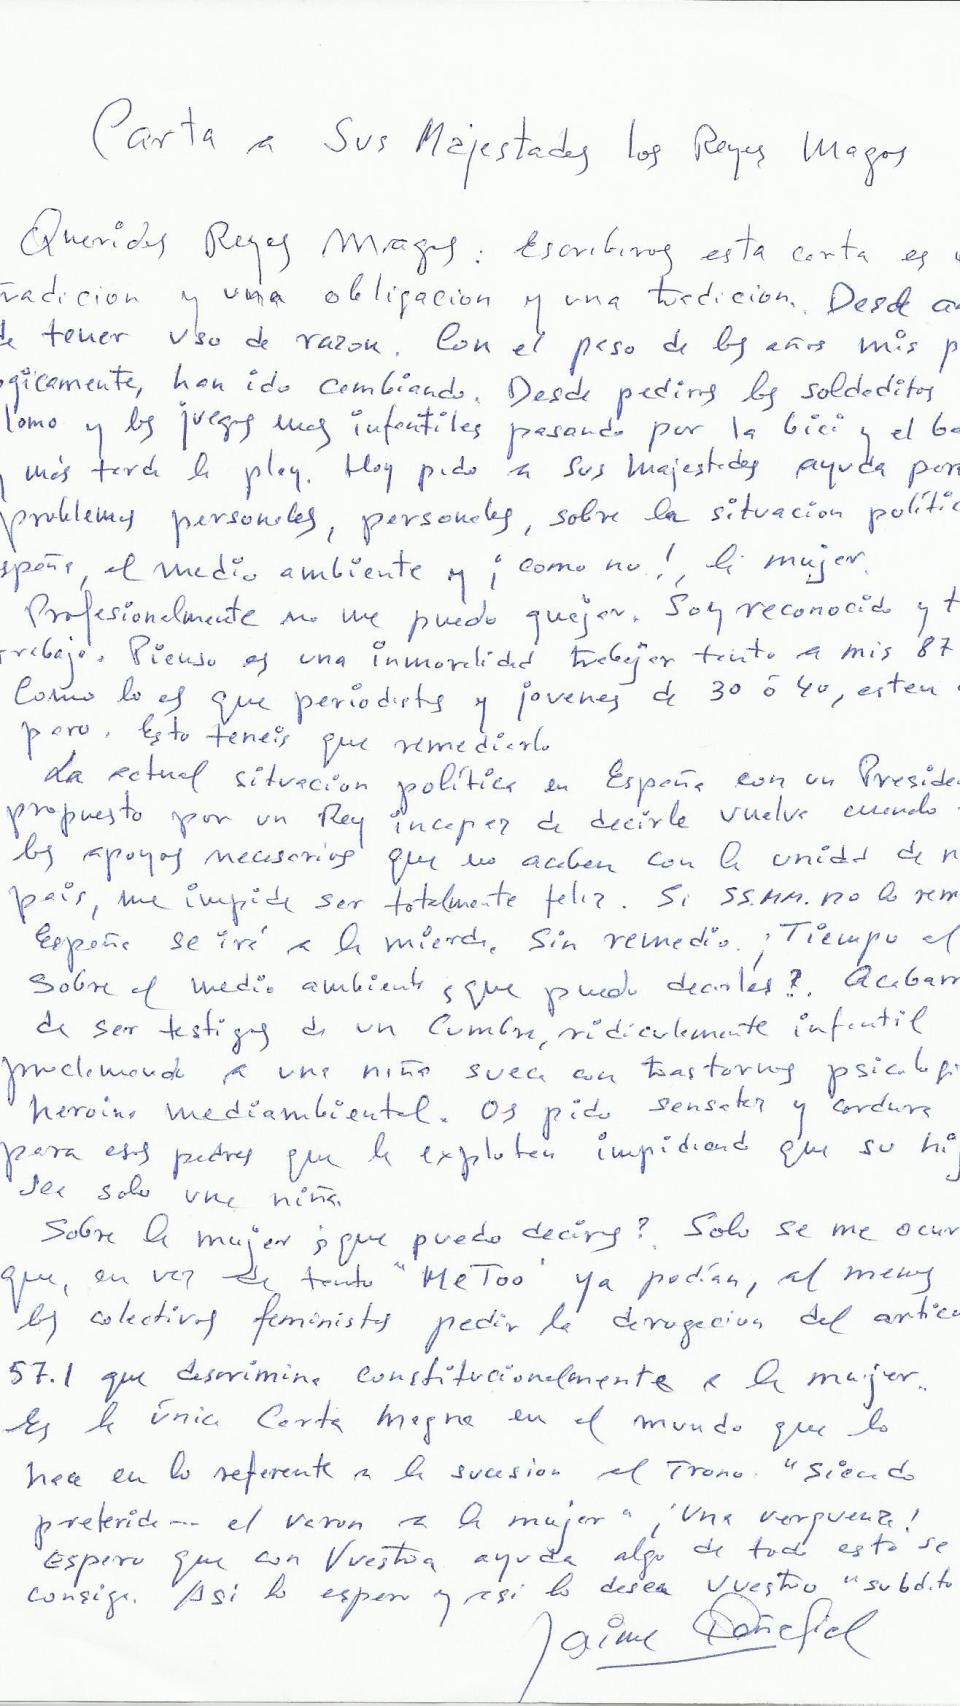 Carta a Sus Majestades los Reyes Magos
Queridos Reyes Magos: Escribiros esta carta es u
radicion y una obligacion y una tradicion. Desde an
de tener uso de razon. Con el paso de los años mis p
ogicamente, han ido cambiando. Desde pediros los soldaditos
lomo y los juegos mas infantiles pasando por la bici y el ba
y más tarde la play. Hoy pido a Sus Majestades ayuda para
problemas personales, personales, sobre la situacion polític
spaña, el medio ambiente y ¡como no!, la mujer.
Profesionalmente no me puedo quejar. Soy reconocido y t
rabajo. Pienso es una inmoralidad trabajar tanto a mis 87
Como lo es que periodistas y jovenes de 30 ó 40, esten e
paro. Esto teneis que remediarlo
La actual situacion política en España con un Presiden
propuesto por un Rey incapaz de decirle vuelva cuando
los apoyos necesarios que no acaben con la unidad de n
pais, me impide ser totalmente feliz. Si SS.MM. no lo rem
España se irá a la mierda. Sin remedio. ¡Tiempo al
Sobre el medio ambiente ¿que puedo decirles?. Acabam
de ser testigos de un Cumbre, ridiculamente infantil
proclamando a una niña sueca con trastornos psicologi
heroina mediambiental. Os pido sensatez y cordura
para esos padres que la explotan impidiendo que su hij
sea solo una niña.
Sobre la mujer ¿que puedo deciros? Solo se me ocur
que, en vez de tanto "MeToo" ya podían, al menos
los colectivos feministas pedir la derogacion del articu
57.1 que descrimina constitucionalmente a la mujer.
Es la única Carta Magna en el mundo que lo
hace en lo referente a la sucesion al Trono. "Siendo
preferido... el varon a la mujer" ¡Una verguenza!
Espero que con Vuestra ayuda algo de todo esto se
consiga. Asi lo espero y asi lo desea vuestro "subdito
Jaime Peñafiel